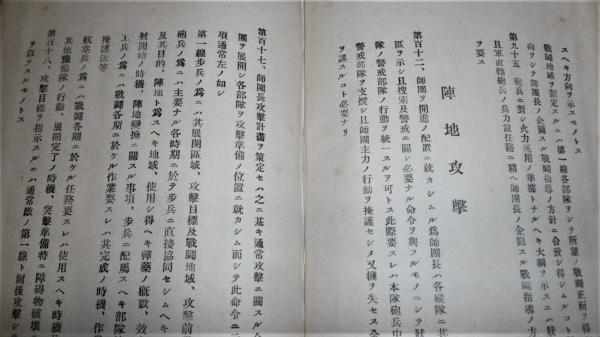 スヘキ方向ヲ示スモノトス
戰鬪地域ヲ劃定スルニハ第一線各部隊ヲシテ所望ノ戰鬪正面ヲ得
向ヲシテ師團長ノ企圖スル戰鬪指導ノ方針ニ合致シ得シムルコト
第九十五 砲兵ニ對シ火力運用ノ準據トナルヘキ大綱ヲ示スニハ狀
且軍直轄砲兵ノ兵力竝任務ニ稽ヘ師團長ノ企圖スル戰鬪指導ノ方
ヲ要ス
陣地攻擊
第百十二、師團ヲ開進ノ配置ニ就カシムル爲師團長ハ各縱隊ニ其
區ヲ示シ且搜索及警戒ニ關シ必要ナル命令ヲ與フルモノニシテ狀
隊ノ警戒部隊ノ行動ヲ統一スルヲ可トス此際要スレハ本隊砲兵中
警戒部隊ヲ支援シ且師團主力ノ行動ヲ掩護セシメ又機ヲ失セス全
ヲ講スルコト必要ナリ
第百十七、師團長攻擊計畫ヲ策定セハ之ニ基キ通常攻擊ニ關スル命
團ヲ展開シ各部隊ヲ攻擊準備ノ位置ニ就カシム而シテ此命令ニ
項通常左ノ如シ
第一線步兵ノ爲ニハ其展開區域、攻擊目標及戰鬪地域、攻擊前
砲兵ノ爲ニハ主要ナル各時期ニ於テ步兵ニ直接協同セシムヘキ
及其目的、陣地ト爲スヘキ地域、使用シ得ヘキ彈藥ノ槪數、效
射開始ノ時機、陣地變換ニ關スル事項、步兵ニ配屬スヘキ部隊
工兵ノ爲ニハ戰鬪各期ニ於ケル作業要スレハ其完成ノ時機、作
掩護法等
航空兵ノ爲ニハ戰鬪各期ニ於ケル任務要スレハ使用スヘキ時機
其他豫備隊ノ行動、展開完了ノ時機、突擊準備特ニ障碍物破壞
第百十八、攻擊目標ヲ指示スルニハ通常敵ノ第一線ト爾後攻擊シ
ヲ以テスルモノトス